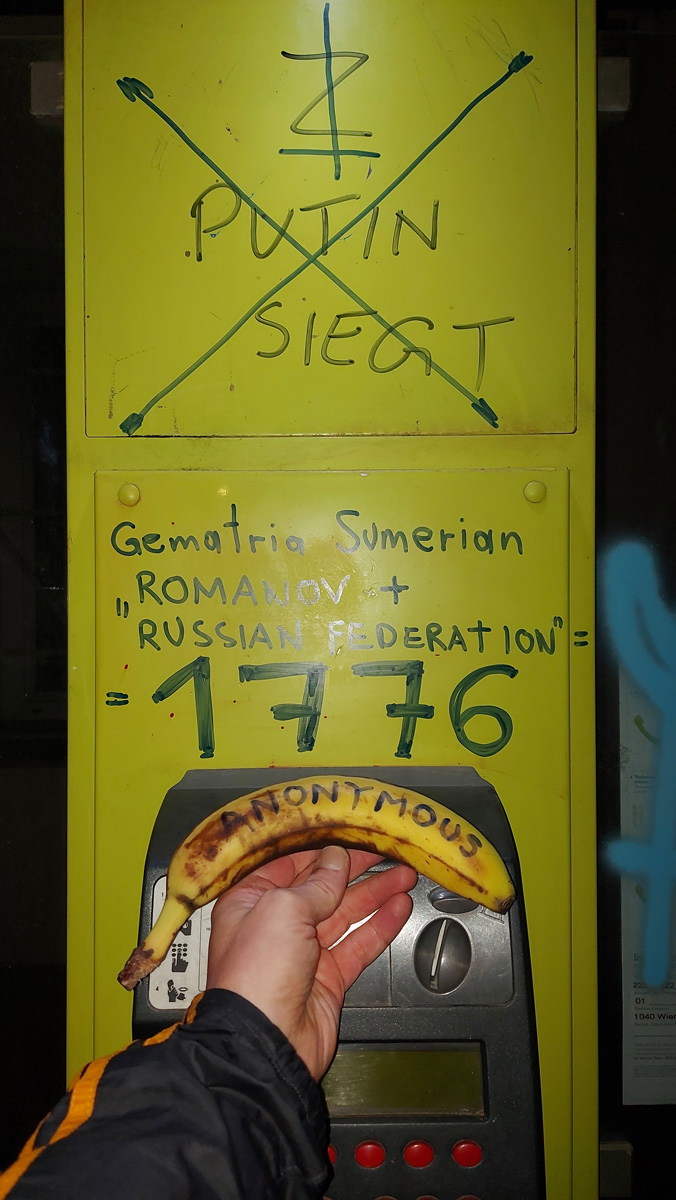 Z
PUTIN
SIEGT
Gematria Sumerian
„ROMANOV +
RUSSIAN FEDERATION" =
= 1776
ANONYMOUS
01
1040 Wien